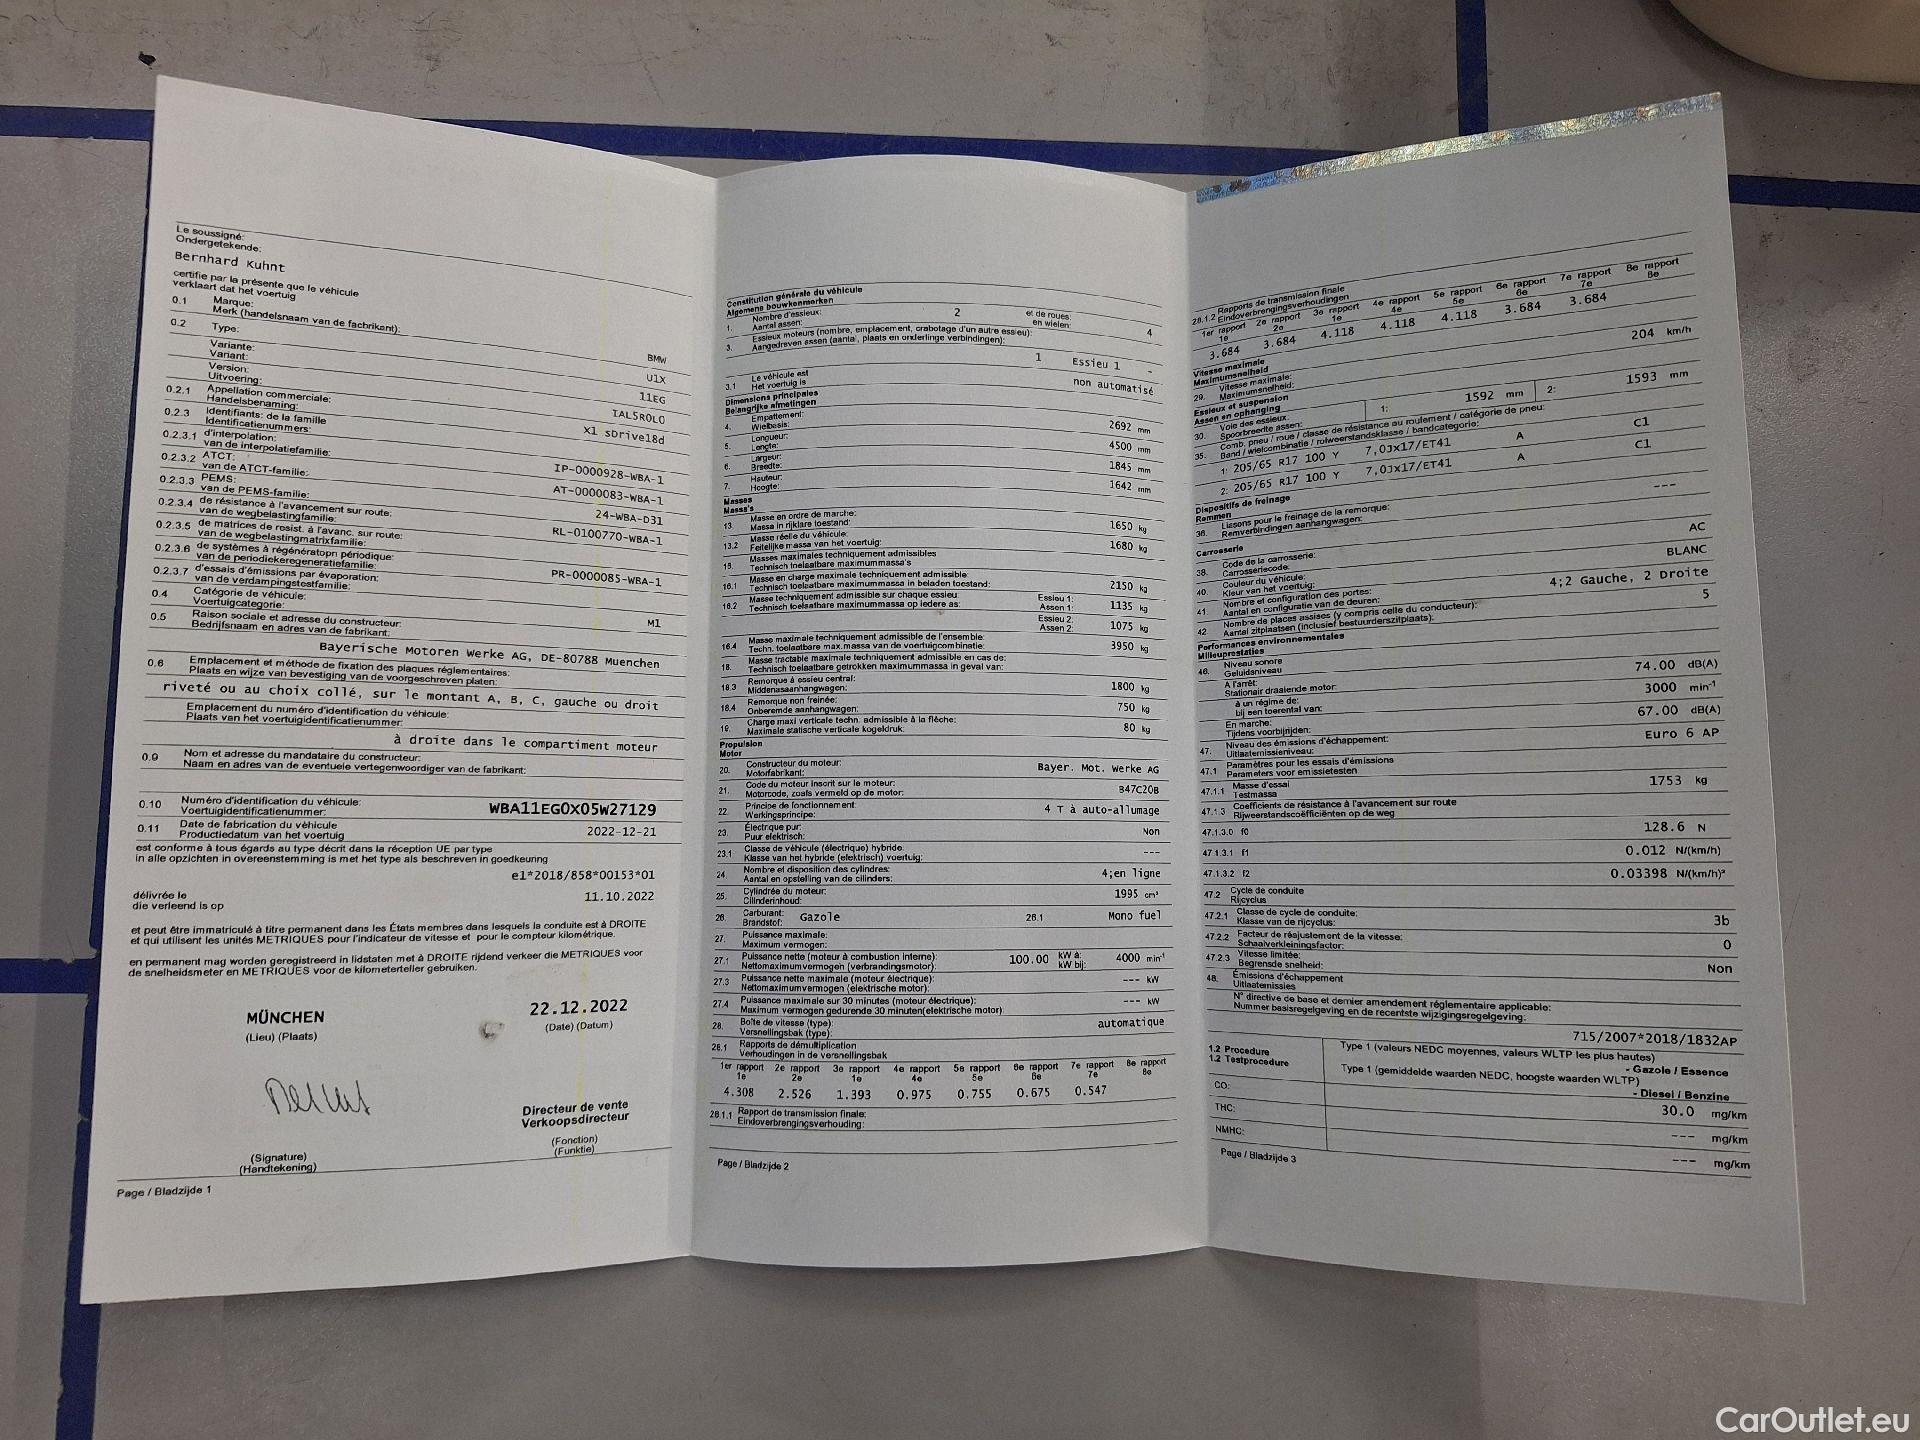 Le soussigné:
Ondergetekende:
Bernhard Kuhnt
certifie par la présente que le véhicule
verklaart dat het voertuig
0.1 Marque:
Merk (handelsnaam van de facbrikant):
BMW
0.2 Type:
U1X
Variante:
Variant:
11EG
Version:
Uitvoering:
IAL5R0L0
0.2.1 Appellation commerciale:
Handelsbenaming:
X1 sDrive18d
0.2.3 Identifiants: de la famille
Identificatienummers:
0.2.3.1 d'interpolation:
van de interpolatiefamilie:
IP-0000928-WBA-1
0.2.3.2 ATCT:
van de ATCT-familie:
AT-0000083-WBA-1
0.2.3.3 PEMS:
van de PEMS-familie:
24-WBA-D31
0.2.3.4 de résistance à l'avancement sur route:
van de wegbelastingfamilie:
RL-0100770-WBA-1
0.2.3.5 de matrices de resist. à l'avanc. sur route:
van de wegbelastingmatrixfamilie:
0.2.3.6 de systèmes à régénératopn périodique:
van de periodiekeregeneratiefamilie:
PR-0000085-WBA-1
0.2.3.7 d'essais d'émissions par évaporation:
van de verdampingstestfamilie:
0.4 Catégorie de véhicule:
Voertuigcategorie:
M1
0.5 Raison sociale et adresse du constructeur:
Bedrijfsnaam en adres van de fabrikant:
Bayerische Motoren Werke AG, DE-80788 Muenchen
0.6 Emplacement et méthode de fixation des plaques réglementaires:
Plaats en wijze van bevestiging van de voorgeschreven platen:
riveté ou au choix collé, sur le montant A, B, C, gauche ou droit
Emplacement du numéro d'identification du véhicule:
Plaats van het voertuigidentificatienummer:
à droite dans le compartiment moteur
0.9 Nom et adresse du mandataire du constructeur:
Naam en adres van de eventuele vertegenwoordiger van de fabrikant:
0.10 Numéro d'identification du véhicule:
Voertuigidentificatienummer:
WBA11EG0X05W27129
0.11 Date de fabrication du véhicule
Productiedatum van het voertuig
2022-12-21
est conforme à tous égards au type décrit dans la réception UE par type
in alle opzichten in overeenstemming is met het type als beschreven in goedkeuring
e1*2018/858*00153*01
délivrée le
die verleend is op
11.10.2022
et peut être immatriculé à titre permanent dans les États membres dans lesquels la conduite est à DROITE
et qui utilisent les unités METRIQUES pour l'indicateur de vitesse et pour le compteur kilométrique.
en permanent mag worden geregistreerd in lidstaten met à DROITE rijdend verkeer die METRIQUES voor
de snelheidsmeter en METRIQUES voor de kilometerteller gebruiken.
MÜNCHEN
22.12.2022
(Lieu) (Plaats)
(Date) (Datum)
Directeur de vente
Verkoopsdirecteur
(Signature)
(Handtekening)
(Fonction)
(Funktie)
Page / Bladzijde 1
Constitution générale du véhicule
Algemene bouwkenmerken
1. Nombre d'essieux: 2 et de roues: 4
Aantal assen: en wielen:
3. Essieux moteurs (nombre, emplacement, crabotage d'un autre essieu):
Aangedreven assen (aantal, plaats en onderlinge verbindingen):
1 Essieu 1 -
3.1 Le véhicule est
Het voertuig is
non automatisé
Dimensions principales
Belangrijke afmetingen
4. Empattement:
Wielbasis:
2692 mm
5. Longueur:
Lengte:
4500 mm
6. Largeur:
Breedte:
1845 mm
7. Hauteur:
Hoogte:
1642 mm
Masses
Massa's
13. Masse en ordre de marche:
Massa in rijklare toestand:
1650 kg
13.2 Masse réelle du véhicule:
Feitelijke massa van het voertuig:
1680 kg
16. Masses maximales techniquement admissibles
Technisch toelaatbare maximummassa's
16.1 Masse en charge maximale techniquement admissible
Technisch toelaatbare maximummassa in beladen toestand:
2150 kg
16.2 Masse techniquement admissible sur chaque essieu:
Technisch toelaatbare maximummassa op iedere as:
Essieu 1:
Assen 1:
1135 kg
Essieu 2:
Assen 2:
1075 kg
16.4 Masse maximale techniquement admissible de l'ensemble:
Techn. toelaatbare max.massa van de voertuigcombinatie:
3950 kg
18. Masse tractable maximale techniquement admissible en cas de:
Technisch toelaatbare getrokken maximummassa in geval van:
18.3 Remorque à essieu central:
Middenasaanhangwagen:
1800 kg
18.4 Remorque non freinée:
Onberemde aanhangwagen:
750 kg
19. Charge maxi verticale techn. admissible à la flèche:
Maximale statische verticale kogeldruk:
80 kg
Propulsion
Motor
20. Constructeur du moteur:
Motorfabrikant:
Bayer. Mot. Werke AG
21. Code du moteur inscrit sur le moteur:
Motorcode, zoals vermeld op de motor:
B47C20B
22. Principe de fonctionnement:
Werkingsprincipe:
4 T à auto-allumage
23. Électrique pur:
Puur elektrisch:
Non
23.1 Classe de véhicule (électrique) hybride:
Klasse van het hybride (elektrisch) voertuig:
---
24. Nombre et disposition des cylindres:
Aantal en opstelling van de cilinders:
4;en ligne
25. Cylindrée du moteur:
Cilinderinhoud:
1995 cm³
26. Carburant:
Brandstof:
Gazole 26.1 Mono fuel
27. Puissance maximale:
Maximum vermogen:
27.1 Puissance nette (moteur à combustion interne):
Nettomaximumvermogen (verbrandingsmotor):
100.00 kW à:
kW bij:
4000 min⁻¹
27.3 Puissance nette maximale (moteur électrique):
Nettomaximumvermogen (elektrische motor):
--- kW
27.4 Puissance maximale sur 30 minutes (moteur électrique):
Maximum vermogen gedurende 30 minuten(elektrische motor):
--- kW
28. Boîte de vitesse (type):
Versnellingsbak (type):
automatique
28.1 Rapports de démultiplication
Verhoudingen in de versnellingsbak
1er rapport 2e rapport 3e rapport 4e rapport 5e rapport 6e rapport 7e rapport 8e rapport
1e 2e 1e 4e 5e 6e 7e 8e
4.308 2.526 1.393 0.975 0.755 0.675 0.547
28.1.1 Rapport de transmission finale:
Eindoverbrengingsverhouding:
Page / Bladzijde 2
28.1.2 Rapports de transmission finale
Eindoverbrengingsverhoudingen
1er rapport 2e rapport 3e rapport 4e rapport 5e rapport 6e rapport 7e rapport 8e rapport
1e 2e 1e 4e 5e 6e 7e 8e
3.684 3.684 4.118 4.118 4.118 3.684 3.684
Vitesse maximale
Maximumsnelheid
29. Vitesse maximale:
Maximumsnelheid:
204 km/h
Essieux et suspension
Assen en ophanging
30. Voie des essieux:
Spoorbreedte assen:
1: 1592 mm 2: 1593 mm
35. Comb. pneu / roue / classe de résistance au roulement / catégorie de pneu:
Band / wielcombinatie / rolweerstandsklasse / bandcategorie:
1: 205/65 R17 100 Y 7,0Jx17/ET41 A C1
2: 205/65 R17 100 Y 7,0Jx17/ET41 A C1
Dispositifs de freinage
Remmen
36. Liasons pour le freinage de la remorque:
Remverbindingen aanhangwagen:
---
Carrosserie
38. Code de la carrosserie:
Carrosseriecode:
AC
40. Couleur du véhicule:
Kleur van het voertuig:
BLANC
41. Nombre et configuration des portes:
Aantal en configuratie van de deuren:
4;2 Gauche, 2 Droite
42 Nombre de places assises (y compris celle du conducteur):
Aantal zitplaatsen (inclusief bestuurderszitplaats):
5
Performances environnementales
Milieuprestaties
46. Niveau sonore
Geluidsniveau
A l'arrêt:
Stationair draaiende motor:
74.00 dB(A)
à un régime de:
bij een toerental van:
3000 min⁻¹
En marche:
Tijdens voorbijrijden:
67.00 dB(A)
47. Niveau des émissions d'échappement:
Uitlaatemissieniveau:
Euro 6 AP
47.1 Paramètres pour les essais d'émissions
Parameters voor emissietesten
47.1.1 Masse d'essai
Testmassa
1753 kg
47.1.3 Coefficients de résistance à l'avancement sur route
Rijweerstandscoëfficiënten op de weg
47.1.3.0 f0 128.6 N
47.1.3.1 f1 0.012 N/(km/h)
47.1.3.2 f2 0.03398 N/(km/h)²
47.2 Cycle de conduite
Rijcyclus
47.2.1 Classe de cycle de conduite:
Klasse van de rijcyclus:
3b
47.2.2 Facteur de réajustement de la vitesse:
Schaalverkleiningsfactor:
0
47.2.3 Vitesse limitée:
Begrensde snelheid:
Non
48. Émissions d'échappement
Uitlaatemissies
N° directive de base et dernier amendement réglementaire applicable:
Nummer basisregelgeving en de recentste wijzigingsregelgeving:
715/2007*2018/1832AP
1.2 Procedure
1.2 Testprocedure
Type 1 (valeurs NEDC moyennes, valeurs WLTP les plus hautes)
- Gazole / Essence
Type 1 (gemiddelde waarden NEDC, hoogste waarden WLTP)
- Diesel / Benzine
CO: 30.0 mg/km
THC: --- mg/km
NMHC: --- mg/km
Page / Bladzijde 3
CarOutlet.eu